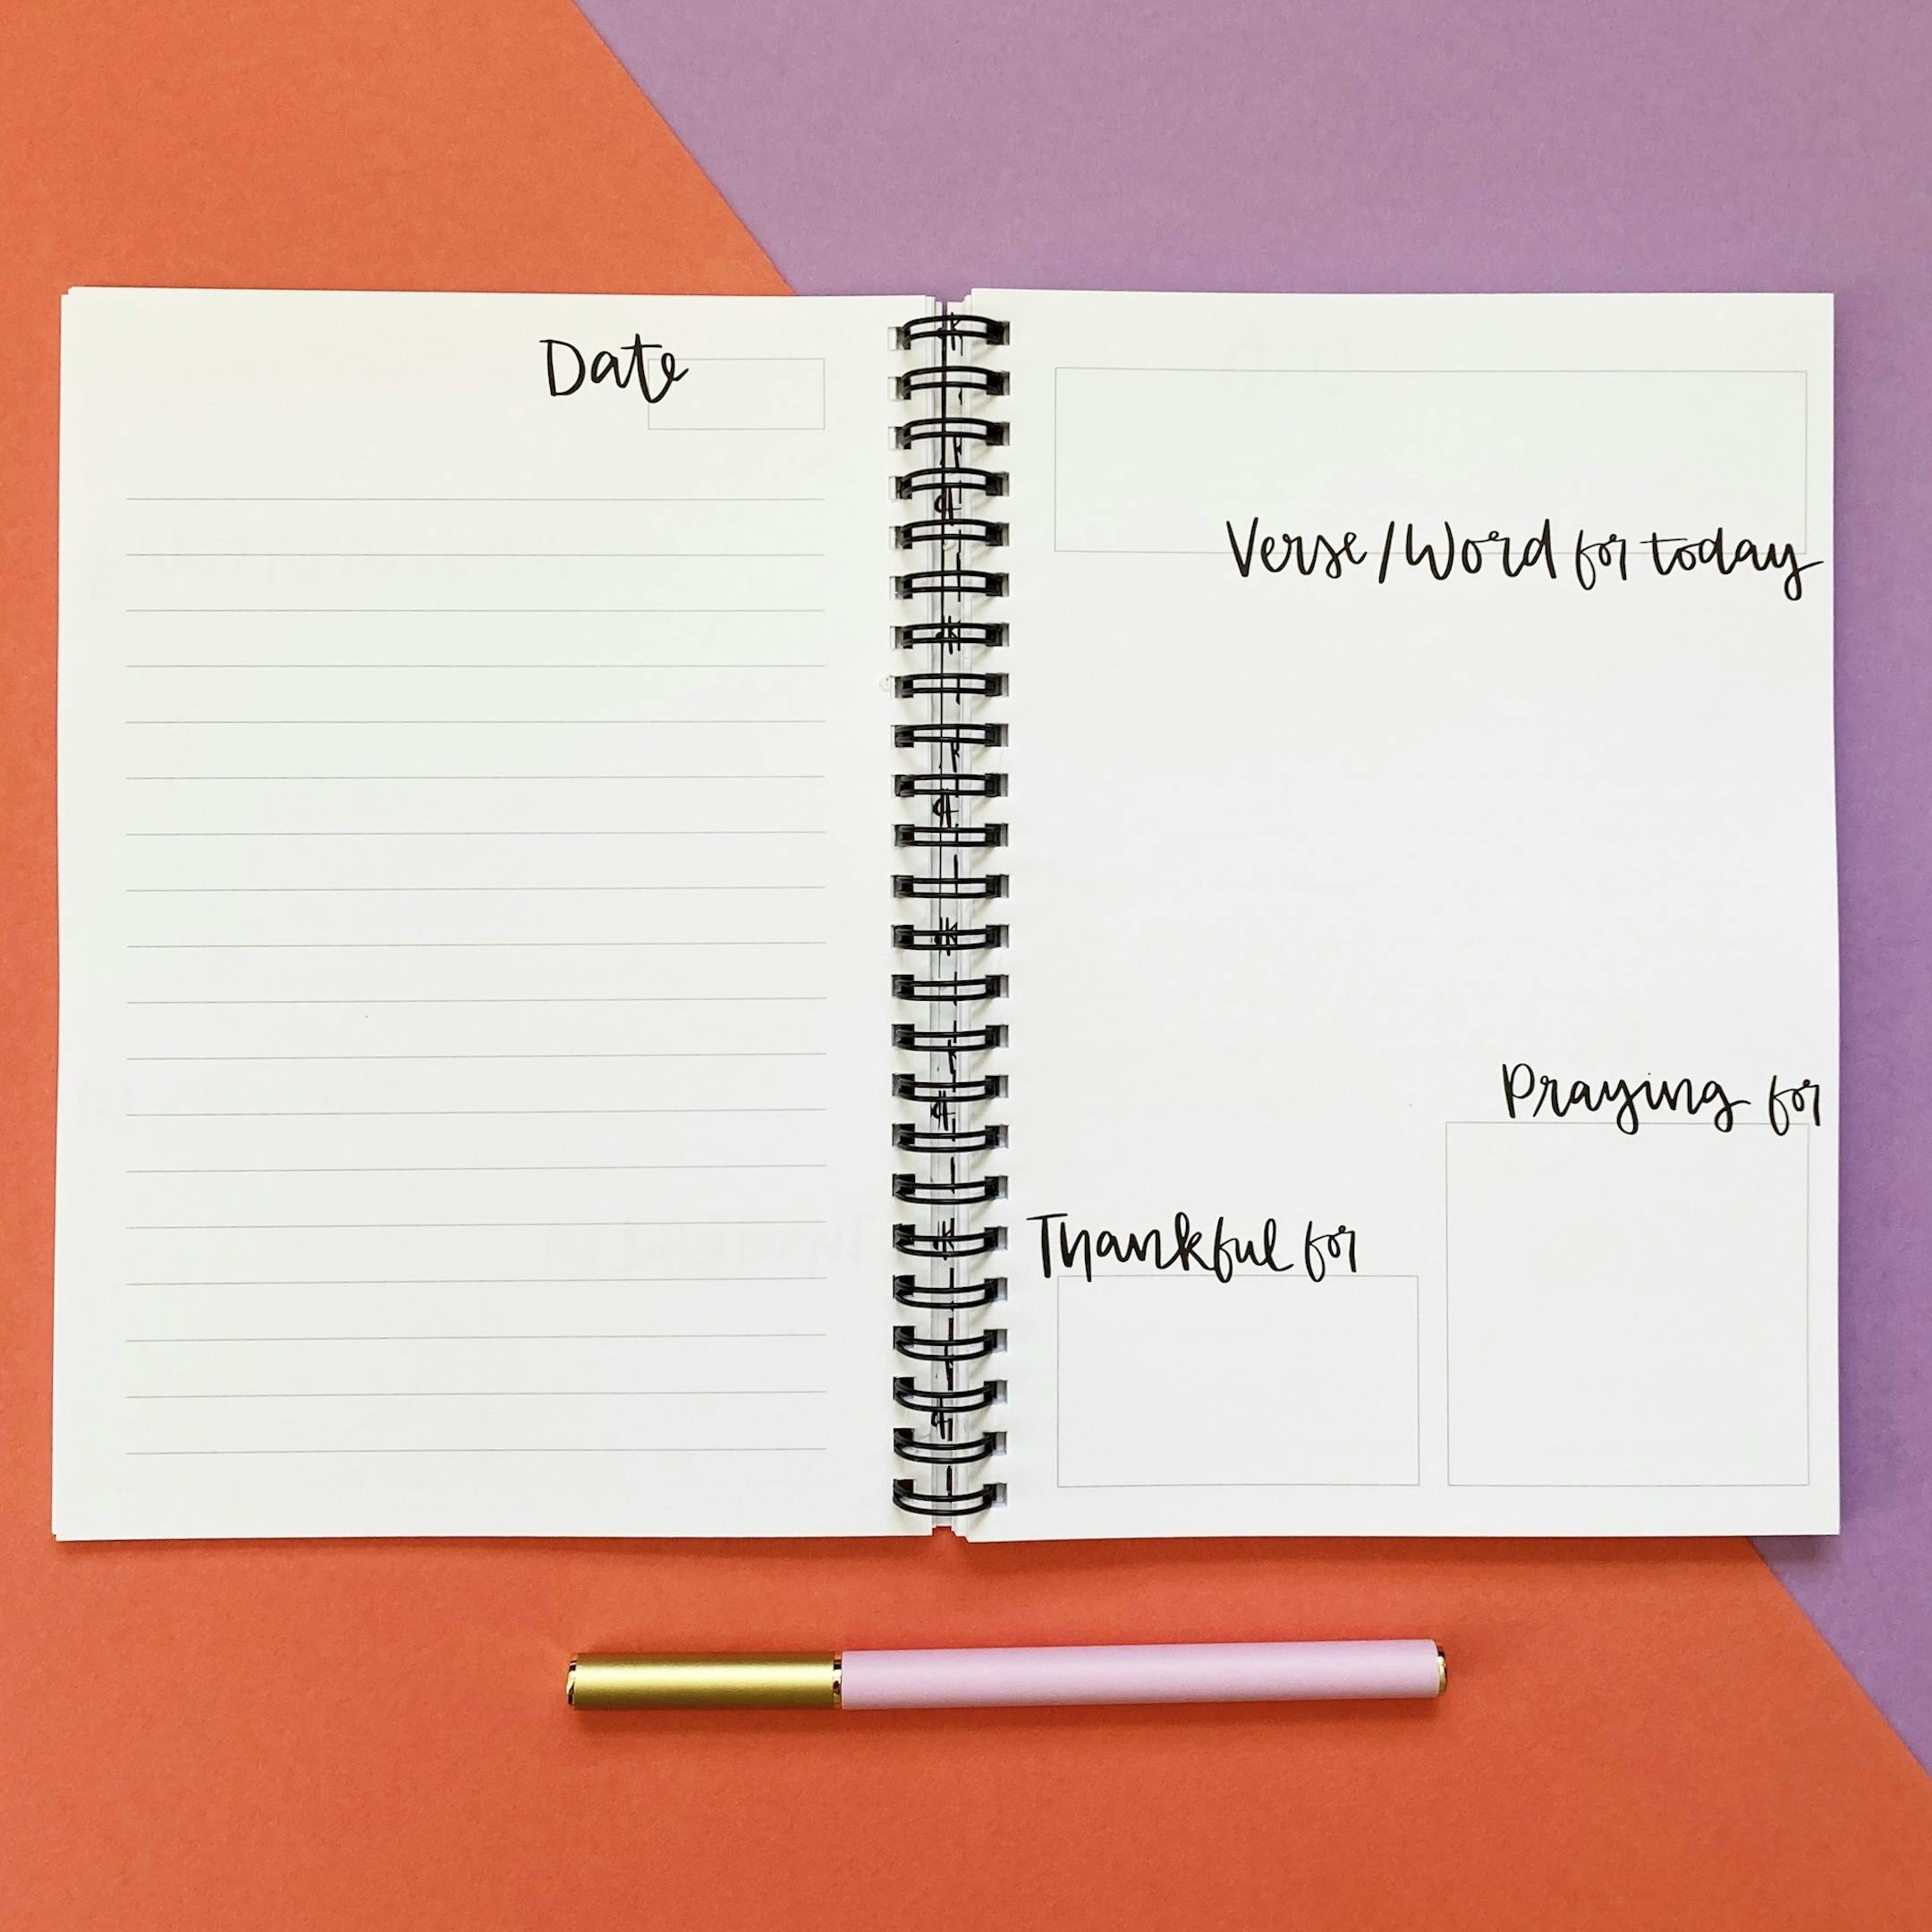 Date
Verse/Word for today
Praying for
Thankful for